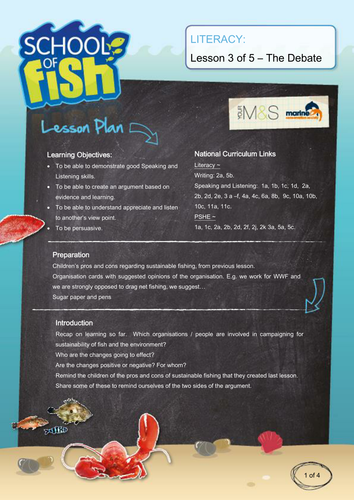 SCHOOL
OF
fish
LITERACY:
Lesson 3 of 5 – The Debate
YOUR
M&S
marine
Lesson Plan
Learning Objectives:
• To be able to demonstrate good Speaking and
Listening skills.
• To be able to create an argument based on
evidence and learning.
• To be able to understand appreciate and listen
to another's view point.
• To be persuasive.
National Curriculum Links
Literacy ~
Writing: 2a, 5b.
Speaking and Listening: 1a, 1b, 1c, 1d, 2a,
2b, 2d, 2e, 3 a -f, 4a, 4c, 6a, 8b, 9c, 10a, 10b,
10c, 11a, 11c.
PSHE ~
1a, 1c, 2a, 2b, 2d, 2f, 2j, 2k 3a, 5a, 5c.
Preparation
Children's pros and cons regarding sustainable fishing, from previous lesson.
Organisation cards with suggested opinions of the organisation. E.g. we work for WWF and
we are strongly opposed to drag net fishing, we suggest…
Sugar paper and pens
Introduction
Recap on learning so far. Which organisations / people are involved in campaigning for
sustainability of fish and the environment?
Who are the changes going to effect?
Are the changes positive or negative? For whom?
Remind the children of the pros and cons of sustainable fishing that they created last lesson.
Share some of these to remind ourselves of the two sides of the argument.
1 of 4